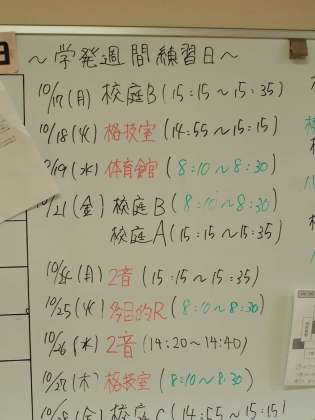 ～学発週間練習日～
10/17(月) 校庭B(15:15～15:35)
10/18(火) 格技室(14:55～15:15)
10/19(水) 体育館(8:10～8:30)
10/21(金) 校庭B(8:10～8:30)
校庭A(15:15～15:35)
10/24(月) 2音(15:15～15:35)
10/25(火) 多目的R(8:10～8:30)
10/26(水) 2音(14:20～14:40)
10/27(木) 格技室(8:10～8:30)
10/28(金) 校庭C(14:55～15:15)